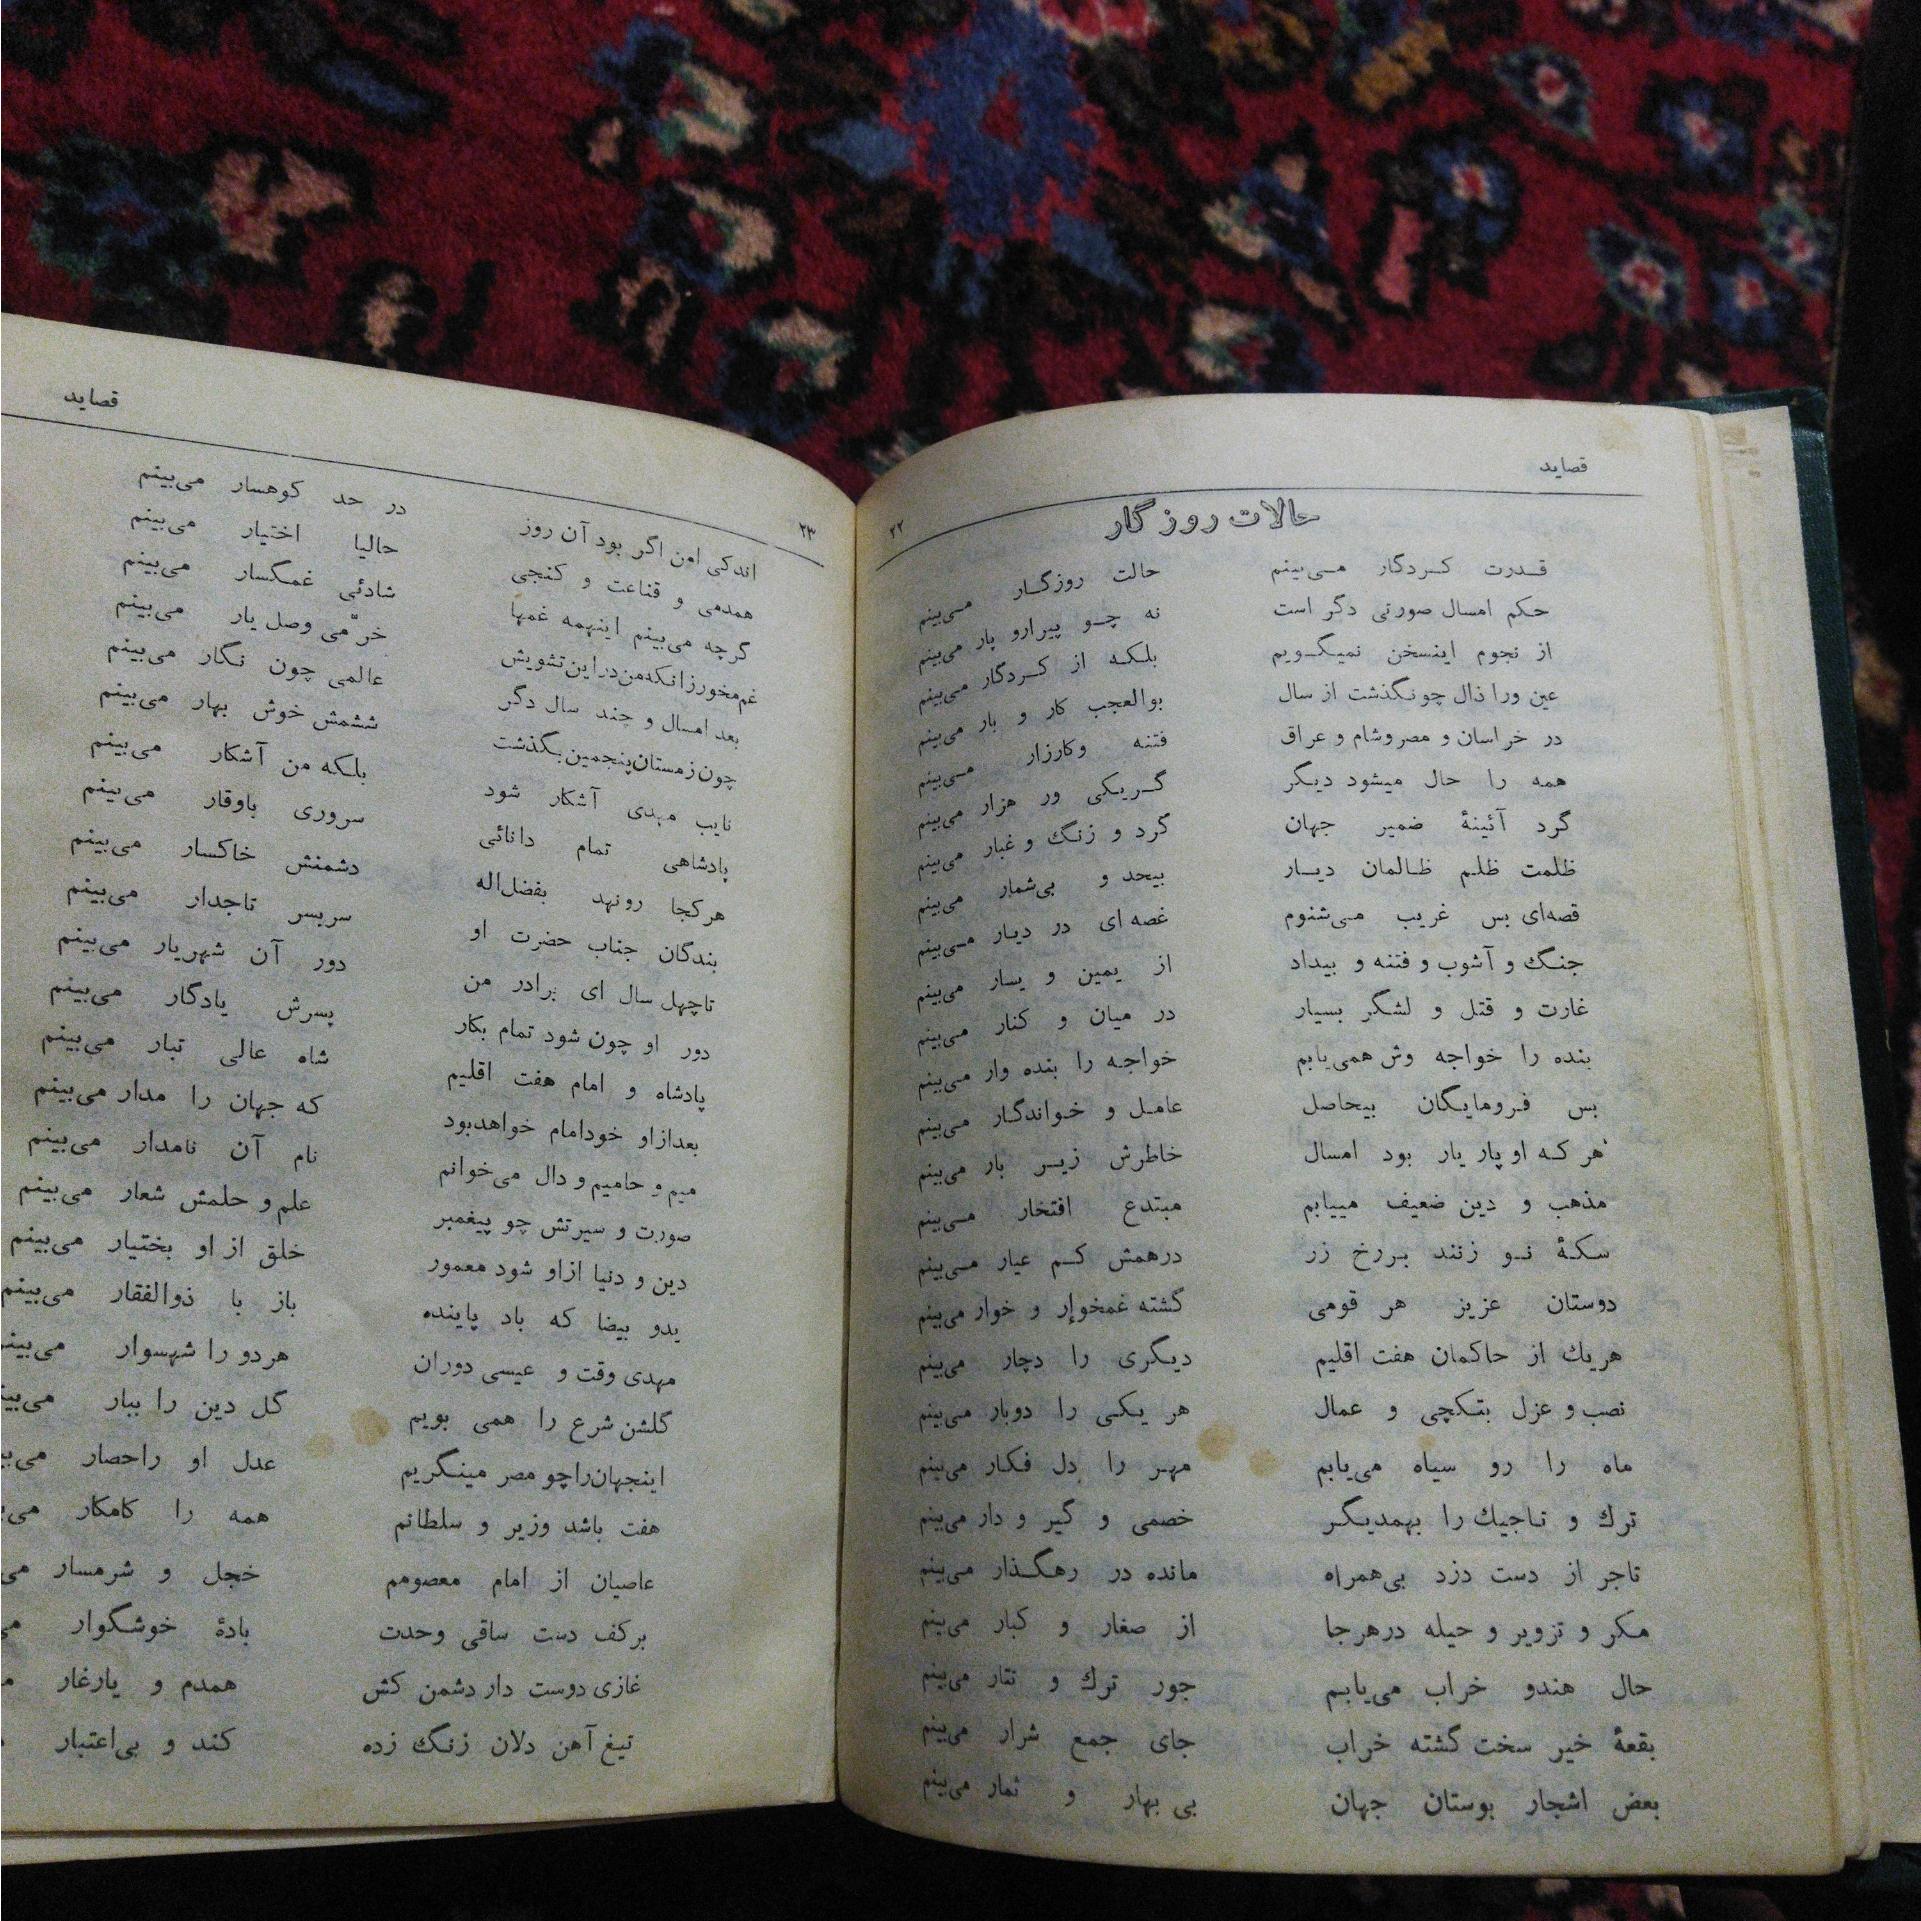 قصاید
۲۲
حالات روزگار
قدرت کردگار می‌بینم حالت روزگار می‌بینم
حکم امسال صورتی دگر است نه چو پیرارو پار می‌بینم
از نجوم اینسخن نمیگویم بلکه از کردگار می‌بینم
عین ورا ذال چونگذشت از سال بوالعجب کار و بار می‌بینم
در خراسان و مصر وشام و عراق فتنه وکارزار می‌بینم
همه را حال میشود دیگر گریکی ور هزار می‌بینم
گرد آئینهٔ ضمیر جهان گرد و زنگ و غبار می‌بینم
ظلمت ظلم ظالمان دیار بیحد و بی‌شمار می‌بینم
قصه‌ای بس غریب می‌شنوم غصه ای در دیار می‌بینم
جنگ و آشوب و فتنه و بیداد از یمین و یسار می‌بینم
غارت و قتل و لشگر بسیار در میان و کنار می‌بینم
بنده را خواجه وش همی‌یابم خواجه را بنده وار می‌بینم
بس فرومایگان بیحاصل عامل و خواندگار می‌بینم
هر که او پار یار بود امسال خاطرش زیر بار می‌بینم
مذهب و دین ضعیف مییابم مبتدع افتخار می‌بینم
سکهٔ نو زنند بررخ زر درهمش کم عیار می‌بینم
دوستان عزیز هر قومی گشته غمخوار و خوار می‌بینم
هریك از حاکمان هفت اقلیم دیگری را دچار می‌بینم
نصب و عزل بتکچی و عمال هر یکی را دوبار می‌بینم
ماه را رو سیاه می‌یابم مهر را دل فکار می‌بینم
ترك و تاجیك را بهمدیگر خصمی و گیر و دار می‌بینم
تاجر از دست دزد بی‌همراه مانده در رهگذار می‌بینم
مکر و تزویر و حیله درهرجا از صغار و کبار می‌بینم
حال هندو خراب می‌یابم جور ترك و تتار می‌بینم
بقعهٔ خیر سخت گشته خراب جای جمع شرار می‌بینم
بعض اشجار بوستان جهان بی بهار و ثمار می‌بینم
۲۳
قصاید
اندکی امن اگر بود آن روز در حد کوهسار می‌بینم
همدمی و قناعت و کنجی حالیا اختیار می‌بینم
گرچه می‌بینم اینهمه غمها شادئی غمگسار می‌بینم
غم‌مخورزانکه‌من‌دراین‌تشویش خرّمی وصل یار می‌بینم
بعد امسال و چند سال دگر عالمی چون نگار می‌بینم
چون‌زمستان‌پنجمین‌بگذشت ششمش خوش بهار می‌بینم
نایب مهدی آشکار شود بلکه من آشکار می‌بینم
پادشاهی تمام دانائی سروری باوقار می‌بینم
هرکجا رونهد بفضل‌اله دشمنش خاکسار می‌بینم
بندگان جناب حضرت او سربسر تاجدار می‌بینم
تاچهل سال ای برادر من دور آن شهریار می‌بینم
دور او چون شود تمام بکار پسرش یادگار می‌بینم
پادشاه و امام هفت اقلیم شاه عالی تبار می‌بینم
بعدازاو خودامام خواهدبود که جهان را مدار می‌بینم
میم و حامیم و دال می‌خوانم نام آن نامدار می‌بینم
صورت و سیرتش چو پیغمبر علم و حلمش شعار می‌بینم
دین و دنیا ازاو شود معمور خلق از او بختیار می‌بینم
یدو بیضا که باد پاینده باز با ذوالفقار می‌بینم
مهدی وقت و عیسی دوران هردو را شهسوار
گلشن شرع را همی بویم گل دین را ببار
اینجهان‌راچو مصر مینگریم عدل او راحصار
هفت باشد وزیر و سلطانم همه را کامکار
عاصیان از امام معصومم خجل و شرمسار
برکف دست ساقی وحدت بادهٔ خوشگوار
غازی دوست دار دشمن کش همدم و یارغار
تیغ آهن دلان زنگ زده کند و بی‌اعتبار